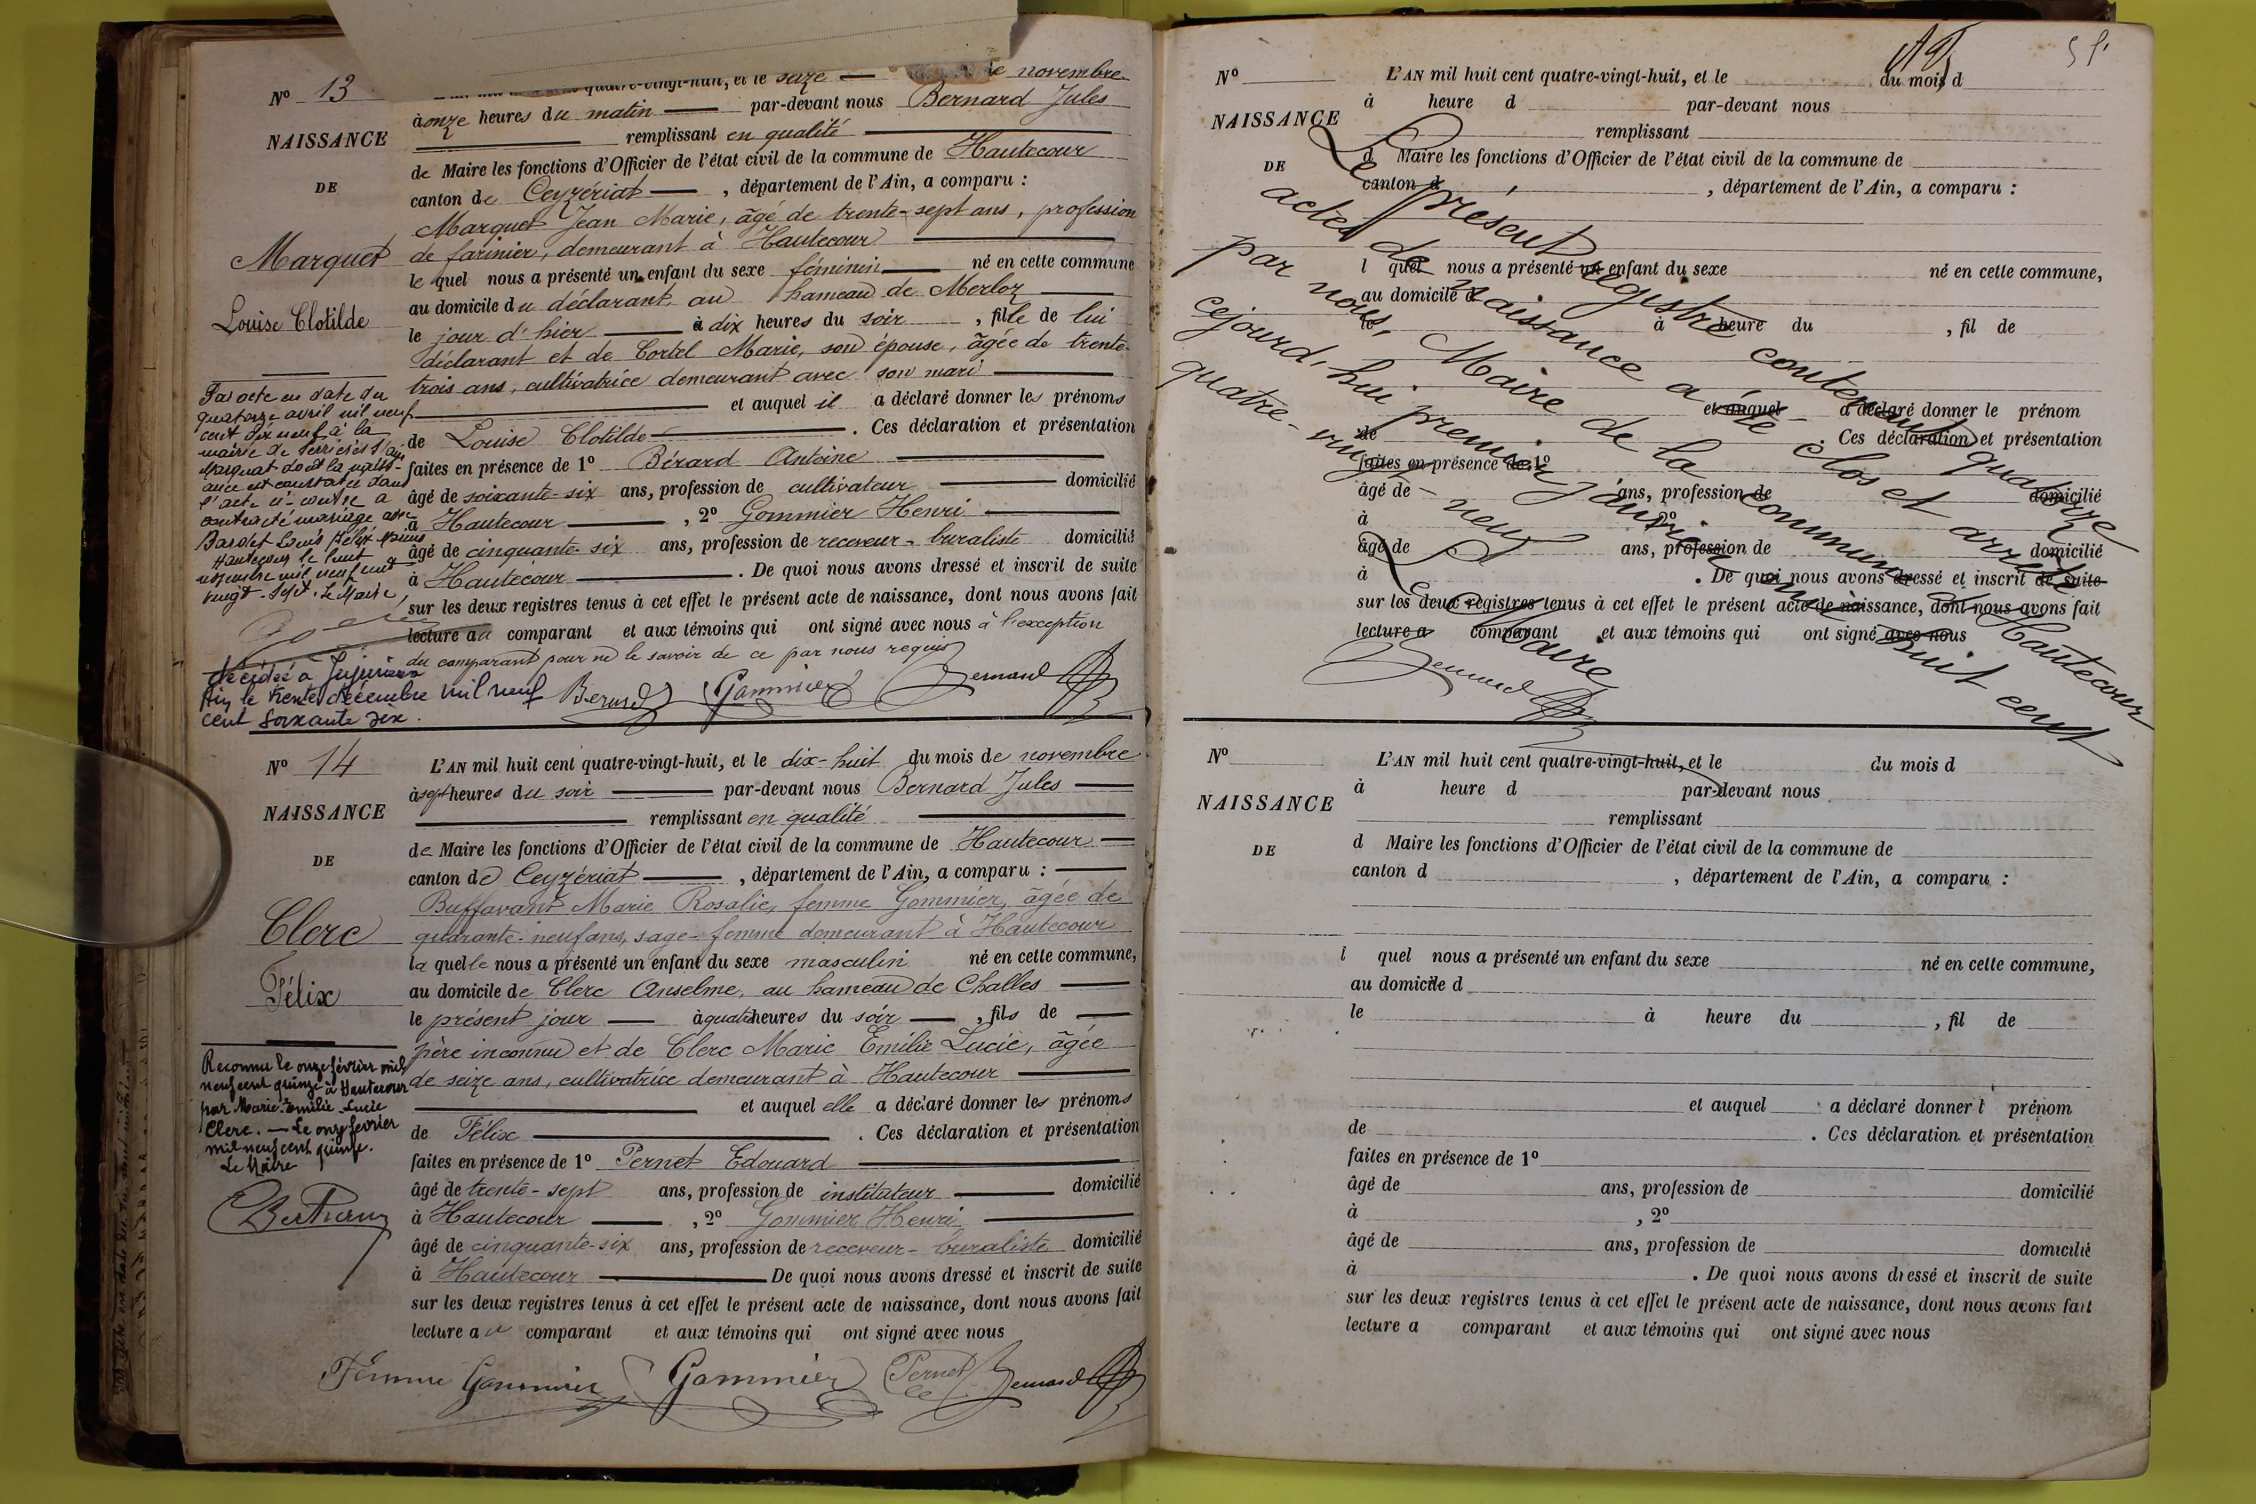 N° 13
NAISSANCE
DE
Marquet
Louise Clotilde
quatre-vingt-huit, et le seize — de novembre
à onze heures du matin — par-devant nous Bernard Jules
remplissant en qualité
de Maire les fonctions d'Officier de l'état civil de la commune de Hautecour
canton de Ceyzériat — , département de l'Ain, a comparu :
Marquet Jean Marie, âgé de trente-sept ans, profession
de farinier, demeurant à Hautecour
le quel nous a présenté un enfant du sexe féminin — né en cette commune
au domicile du déclarant au hameau de Merloz
le jour d'hier — à dix heures du soir , fille de lui
déclarant et de Cortel Marie, son épouse, âgée de trente-
trois ans, cultivatrice demeurant avec son mari
et auquel il a déclaré donner les prénoms
de Louise Clotilde — . Ces déclaration et présentation
faites en présence de 1° Bérard Antoine
âgé de soixante-six ans, profession de cultivateur — domicilié
à Hautecour — , 2° Gommier Henri
âgé de cinquante-six ans, profession de receveur-buraliste domicilié
à Hautecour — . De quoi nous avons dressé et inscrit de suite
sur les deux registres tenus à cet effet le présent acte de naissance, dont nous avons fait
lecture au comparant et aux témoins qui ont signé avec nous à l'exception
du comparant pour ne le savoir de ce par nous requis
Berard Gommier Bernard
Par acte en date du
quatorze avril mil neuf
cent dix neuf à la
mairie de Serrières s/ Ain
Marquet dont la naiss-
ance est constatée dans
l'acte ci-contre a
contracté mariage avec
Bardet Louis Félix
Hautecour le huit
novembre mil neuf cent
vingt-sept. Le Maire,
décédée à Jujurieux
Ain le trente décembre mil neuf
cent soixante dix.
N° 14
NAISSANCE
DE
Clerc
Félix
L'AN mil huit cent quatre-vingt-huit, et le dix-huit du mois de novembre
à sept heures du soir — par-devant nous Bernard Jules —
remplissant en qualité
de Maire les fonctions d'Officier de l'état civil de la commune de Hautecour —
canton de Ceyzériat — , département de l'Ain, a comparu : —
Buffavant Marie Rosalie, femme Gommier, âgée de
quarante-neuf ans, sage-femme demeurant à Hautecour
la quelle nous a présenté un enfant du sexe masculin né en cette commune,
au domicile de Clerc Anselme, au hameau de Challes —
le présent jour — à quatre heures du soir — , fils de —
père inconnu et de Clerc Marie Emilie Lucie, âgée
de seize ans, cultivatrice demeurant à Hautecour —
et auquel elle a déclaré donner les prénoms
de Félix — . Ces déclaration et présentation
faites en présence de 1° Pernet Edouard
âgé de trente-sept ans, profession de instituteur — domicilié
à Hautecour — , 2° Gommier Henri
âgé de cinquante-six ans, profession de receveur-buraliste domicilié
à Hautecour — De quoi nous avons dressé et inscrit de suite
sur les deux registres tenus à cet effet le présent acte de naissance, dont nous avons fait
lecture au comparant et aux témoins qui ont signé avec nous
Femme Gommier Gommier Pernet Bernard
Reconnu le onze février mil
neuf cent quinze à Hautecour
par Marie-Emilie-Lucie
Clerc. — Le onze février
mil neuf cent quinze.
Le Maire
N°
NAISSANCE
DE
L'AN mil huit cent quatre-vingt-huit, et le du mois d
à heure d par-devant nous
remplissant
d Maire les fonctions d'Officier de l'état civil de la commune de
canton d , département de l'Ain, a comparu :
l quel nous a présenté un enfant du sexe né en cette commune,
au domicile d
le à heure du , fil de
et auquel a déclaré donner le prénom
de . Ces déclaration et présentation
faites en présence de 1°
âgé de ans, profession de domicilié
à , 2°
âgé de ans, profession de domicilié
à . De quoi nous avons dressé et inscrit de suite
sur les deux registres tenus à cet effet le présent acte de naissance, dont nous avons fait
lecture a comparant et aux témoins qui ont signé avec nous
Le présent registre contenant quatorze
actes de naissance a été clos et arrêté
par nous, Maire de la commune d'Hautecour
cejourd'hui premier janvier mil huit cent
quatre-vingt-neuf
Le Maire
Bernard
N°
NAISSANCE
DE
L'AN mil huit cent quatre-vingt-huit, et le du mois d
à heure d par-devant nous
remplissant
d Maire les fonctions d'Officier de l'état civil de la commune de
canton d , département de l'Ain, a comparu :
l quel nous a présenté un enfant du sexe né en cette commune,
au domicile d
le à heure du , fil de
et auquel a déclaré donner l prénom
de . Ces déclaration et présentation
faites en présence de 1°
âgé de ans, profession de domicilié
à , 2°
âgé de ans, profession de domicilié
à . De quoi nous avons dressé et inscrit de suite
sur les deux registres tenus à cet effet le présent acte de naissance, dont nous avons fait
lecture a comparant et aux témoins qui ont signé avec nous